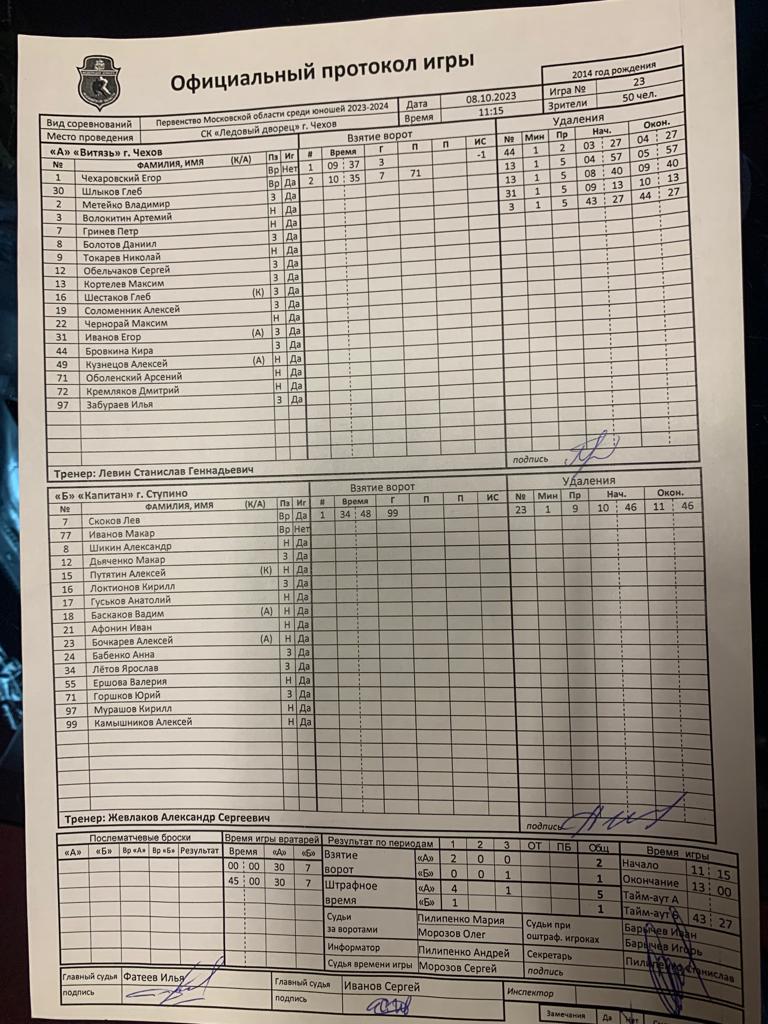 Официальный протокол игры
2014 год рождения
Вид соревнований Первенство Московской области среди юношей 2023-2024 Дата 08.10.2023 Игра № 23
Место проведения СК «Ледовый дворец» г. Чехов Время 11:15 Зрители 50 чел.
«А» «Витязь» г. Чехов Взятие ворот Удаления
№ ФАМИЛИЯ, ИМЯ (К/А) Пз Иг # Время Г П П ИС № Мин Пр Нач. Окон.
1 Чехаровский Егор Вр Нет 1 09 37 3 -1 44 1 2 03 27 04 27
30 Шлыков Глеб Вр Да 2 10 35 7 71 13 1 5 04 57 05 57
2 Метейко Владимир З Да 13 1 5 08 40 09 40
3 Волокитин Артемий Н Да 31 1 5 09 13 10 13
7 Гринев Петр З Да 3 1 5 43 27 44 27
8 Болотов Даниил Н Да
9 Токарев Николай З Да
12 Обельчаков Сергей З Да
13 Кортелев Максим З Да
16 Шестаков Глеб (К) З Да
19 Соломенник Алексей З Да
22 Чернорай Максим Н Да
31 Иванов Егор (А) З Да
44 Бровкина Кира З Да
49 Кузнецов Алексей (А) Н Да
71 Оболенский Арсений Н Да
72 Кремляков Дмитрий Н Да
97 Забураев Илья З Да
Тренер: Левин Станислав Геннадьевич подпись
«Б» «Капитан» г. Ступино Взятие ворот Удаления
№ ФАМИЛИЯ, ИМЯ (К/А) Пз Иг # Время Г П П ИС № Мин Пр Нач. Окон.
7 Скоков Лев Вр Да 1 34 48 99 23 1 9 10 46 11 46
77 Иванов Макар Вр Нет
8 Шикин Александр Н Да
12 Дьяченко Макар З Да
15 Путятин Алексей (К) Н Да
16 Локтионов Кирилл З Да
17 Гуськов Анатолий Н Да
18 Баскаков Вадим (А) Н Да
21 Афонин Иван Н Да
23 Бочкарев Алексей (А) Н Да
24 Бабенко Анна З Да
34 Лётов Ярослав З Да
55 Ершова Валерия Н Да
71 Горшков Юрий З Да
97 Мурашов Кирилл Н Да
99 Камышников Алексей Н Да
Тренер: Жевлаков Александр Сергеевич подпись
Послематчевые броски Время игры вратарей Результат по периодам 1 2 3 ОТ ПБ Общ Время игры
«А» «Б» Вр «А» Вр «Б» Результат Время «А» «Б» Взятие ворот «А» 2 0 0 2 Начало 11 15
00 00 30 7 «Б» 0 0 1 1 Окончание 13 00
45 00 30 7 Штрафное время «А» 4 1 5 Тайм-аут А
«Б» 1 1 Тайм-аут Б 43 27
Судьи за воротами Пилипенко Мария Судьи при оштраф. игроках Барычев Иван
Морозов Олег Барычев Игорь
Информатор Пилипенко Андрей Секретарь Пилипенко Станислав
Судья времени игры Морозов Сергей подпись
Главный судья Фатеев Илья Главный судья Иванов Сергей Инспектор
подпись подпись Замечания Да Нет